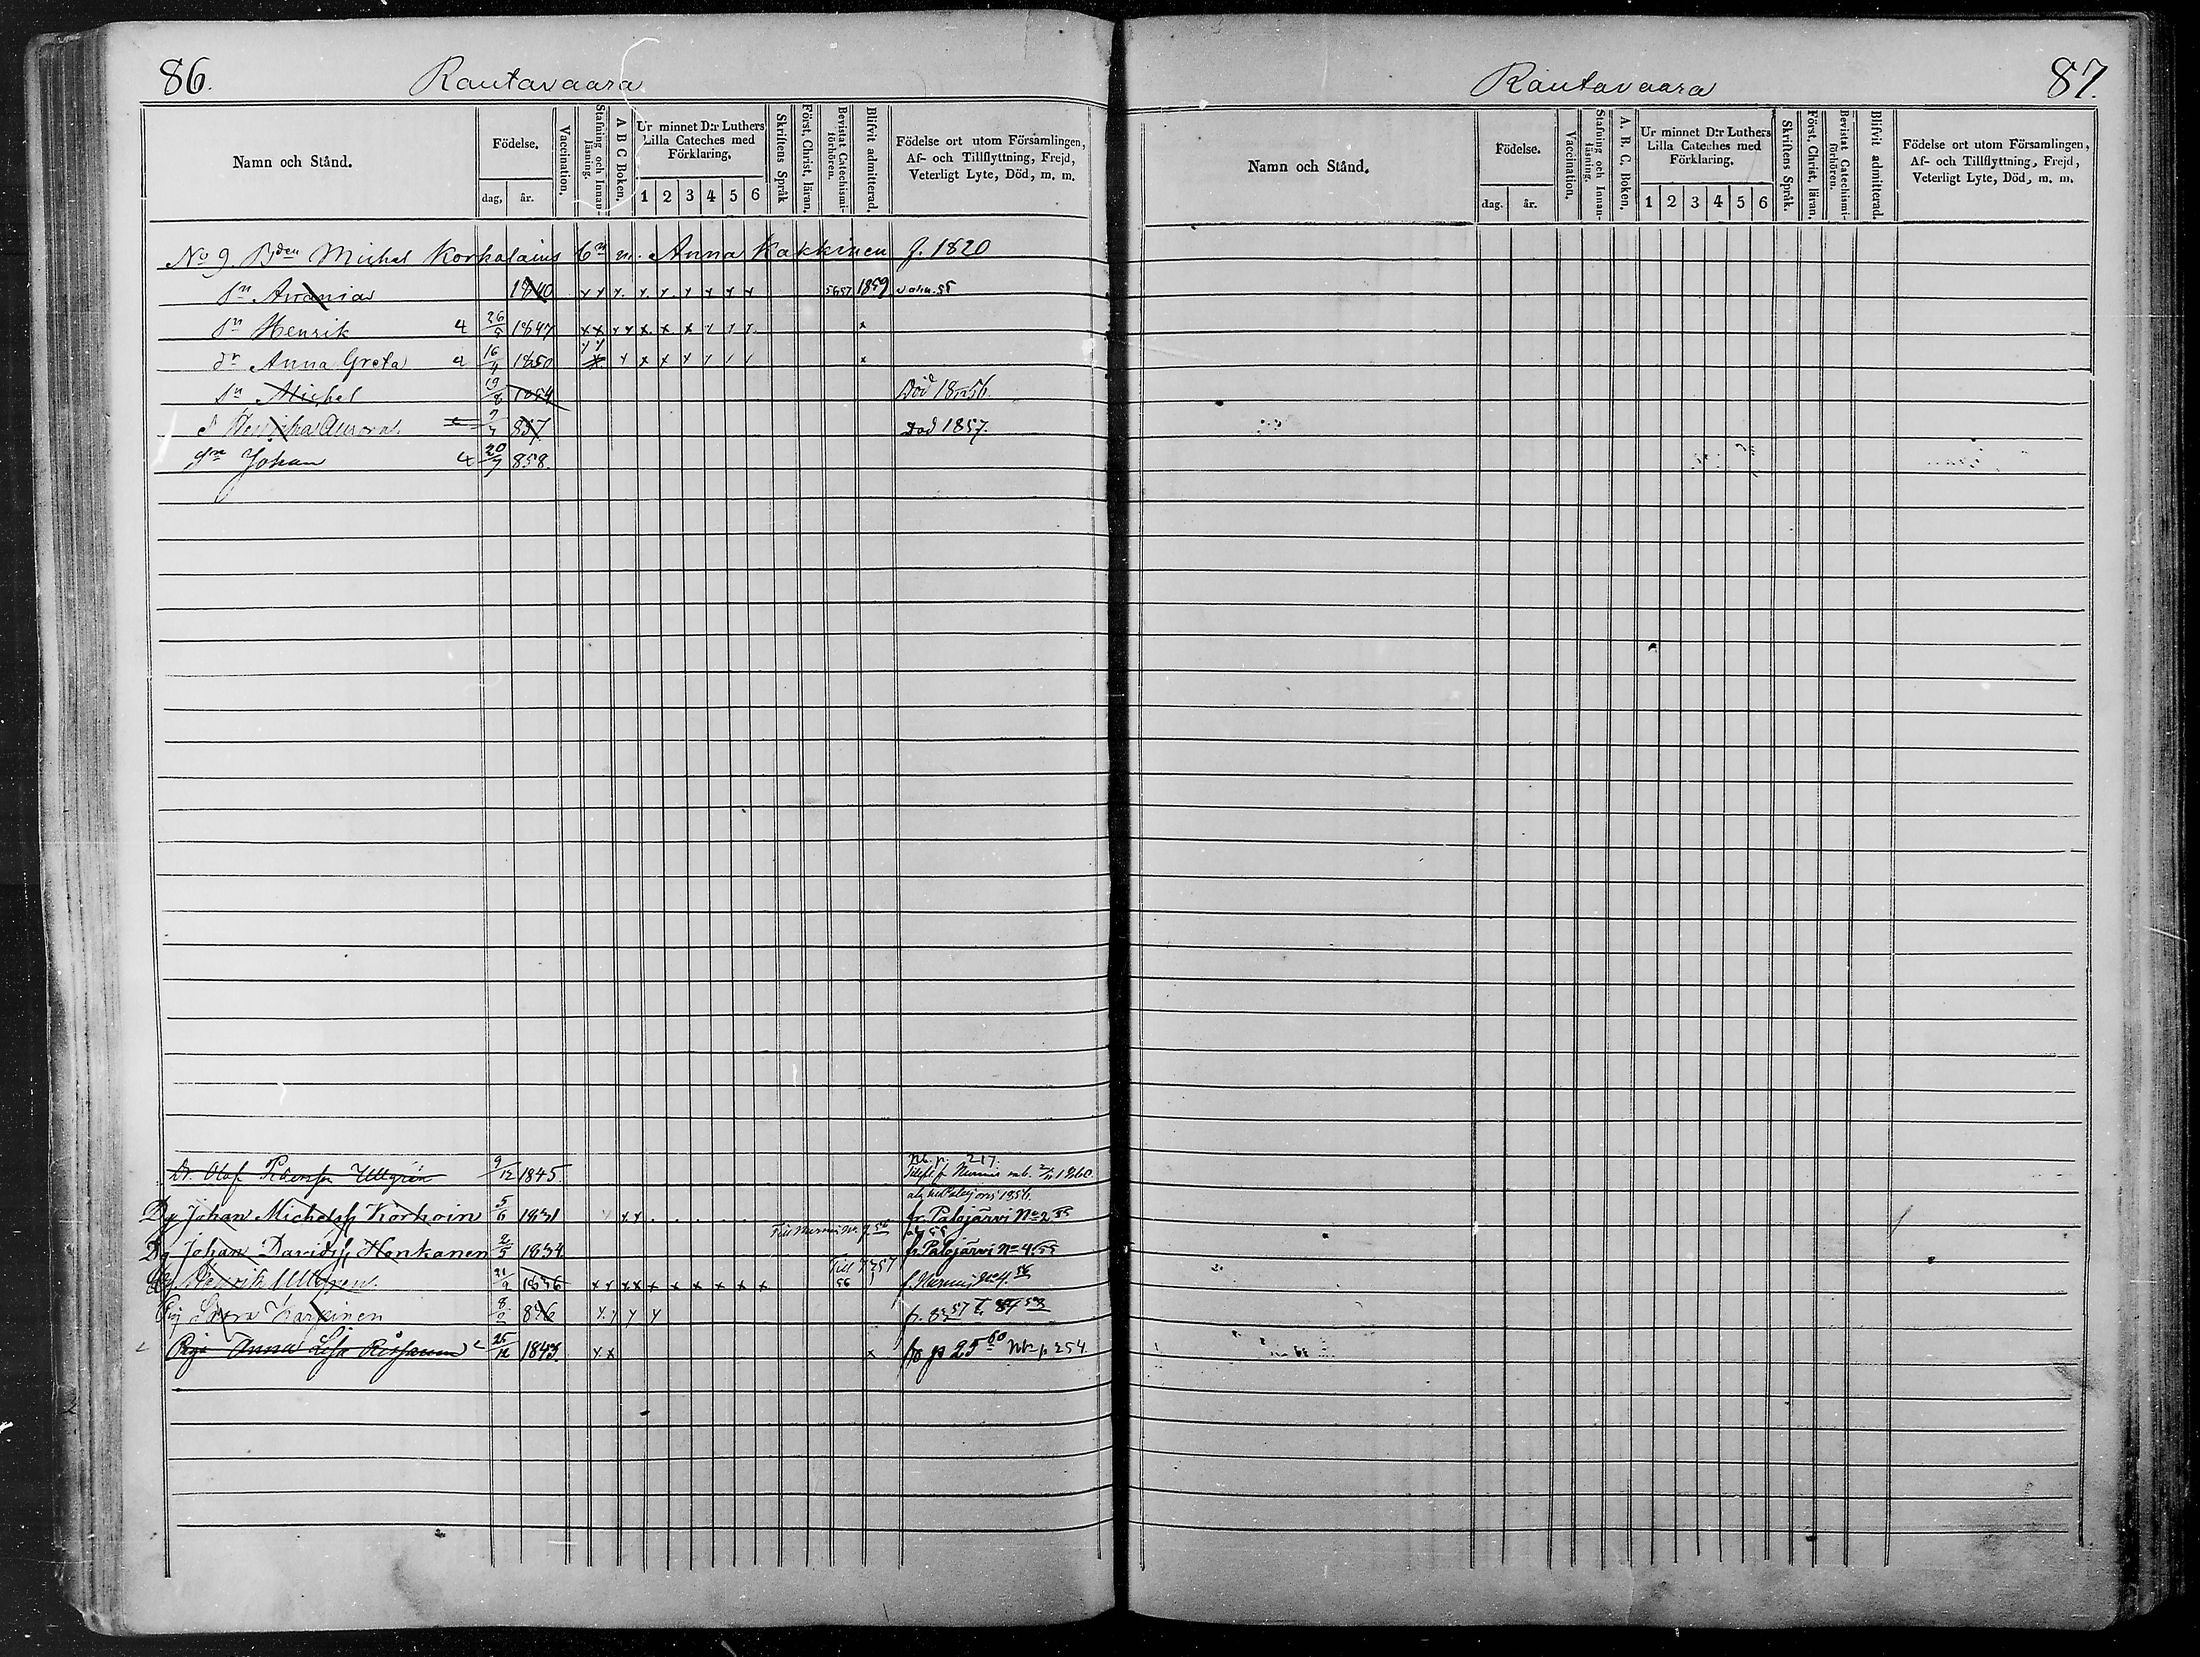 86. Rautavaara
Namn och Stånd. Födelse. dag, år. Vaccination. Stafning och Innanläsning. A B C Boken. Ur minnet D:r Luthers Lilla Cateches med Förklaring. 1 2 3 4 5 6 Skriftens Språk Först. Christ. läran. Bevistat Catechismiförhören. Blifvit admitterad. Födelse ort utom Församlingen, Af- och Tillflyttning, Frejd, Veterligt Lyte, Död, m. m.
No 9. Bden Michel Korhalains Cn m. Anna Kakkinen f. 1820
sn Ananias 1840 x x x. x. x. x x x x 5657 1859
sn Henrik 4 26/5 1847 x x x x x. x. x x
dr Anna Greta 4 16/4 1850 x x x x x
sn Michel 19/8 1854 Död 1856.
Aurora. 7/7 857 Död 1857.
sn Johan 4 20/7 858.
Dr. Olof Ullgrén 9/12 1845. Nb. p. 217.
1860
1856.
Dg Johan Michelss Korhoin 5/6 1831 x x fr. Palojärvi No 2 55
Till Nurmis No 9 56
Dg Johan Davidss Honkanen 2/5 1834. fr. Palojärvi No 4. 55
Till 7 57
Henrik Ullgren. 21/9 1836 x x x x x x x x x x 56 f. Nurmis No 4. 56
Pig Karkinen 8/2 846 x x x x fr. 83 57 t. 84 58
Piga Anna Lisa 25/12 1843. x x x fr p 25 60 Nb p 254.
Rautavaara 87.
Namn och Stånd. Födelse. dag. år. Vaccination. Stafning och Innanläsning. A. B. C. Boken. Ur minnet D:r Luthers Lilla Cateches med Förklaring. 1 2 3 4 5 6 Skriftens Språk. Först. Christ. läran. Bevistat Catechismiförhören. Blifvit admitterad. Födelse ort utom Församlingen, Af- och Tillflyttning, Frejd, Veterligt Lyte, Död, m. m.